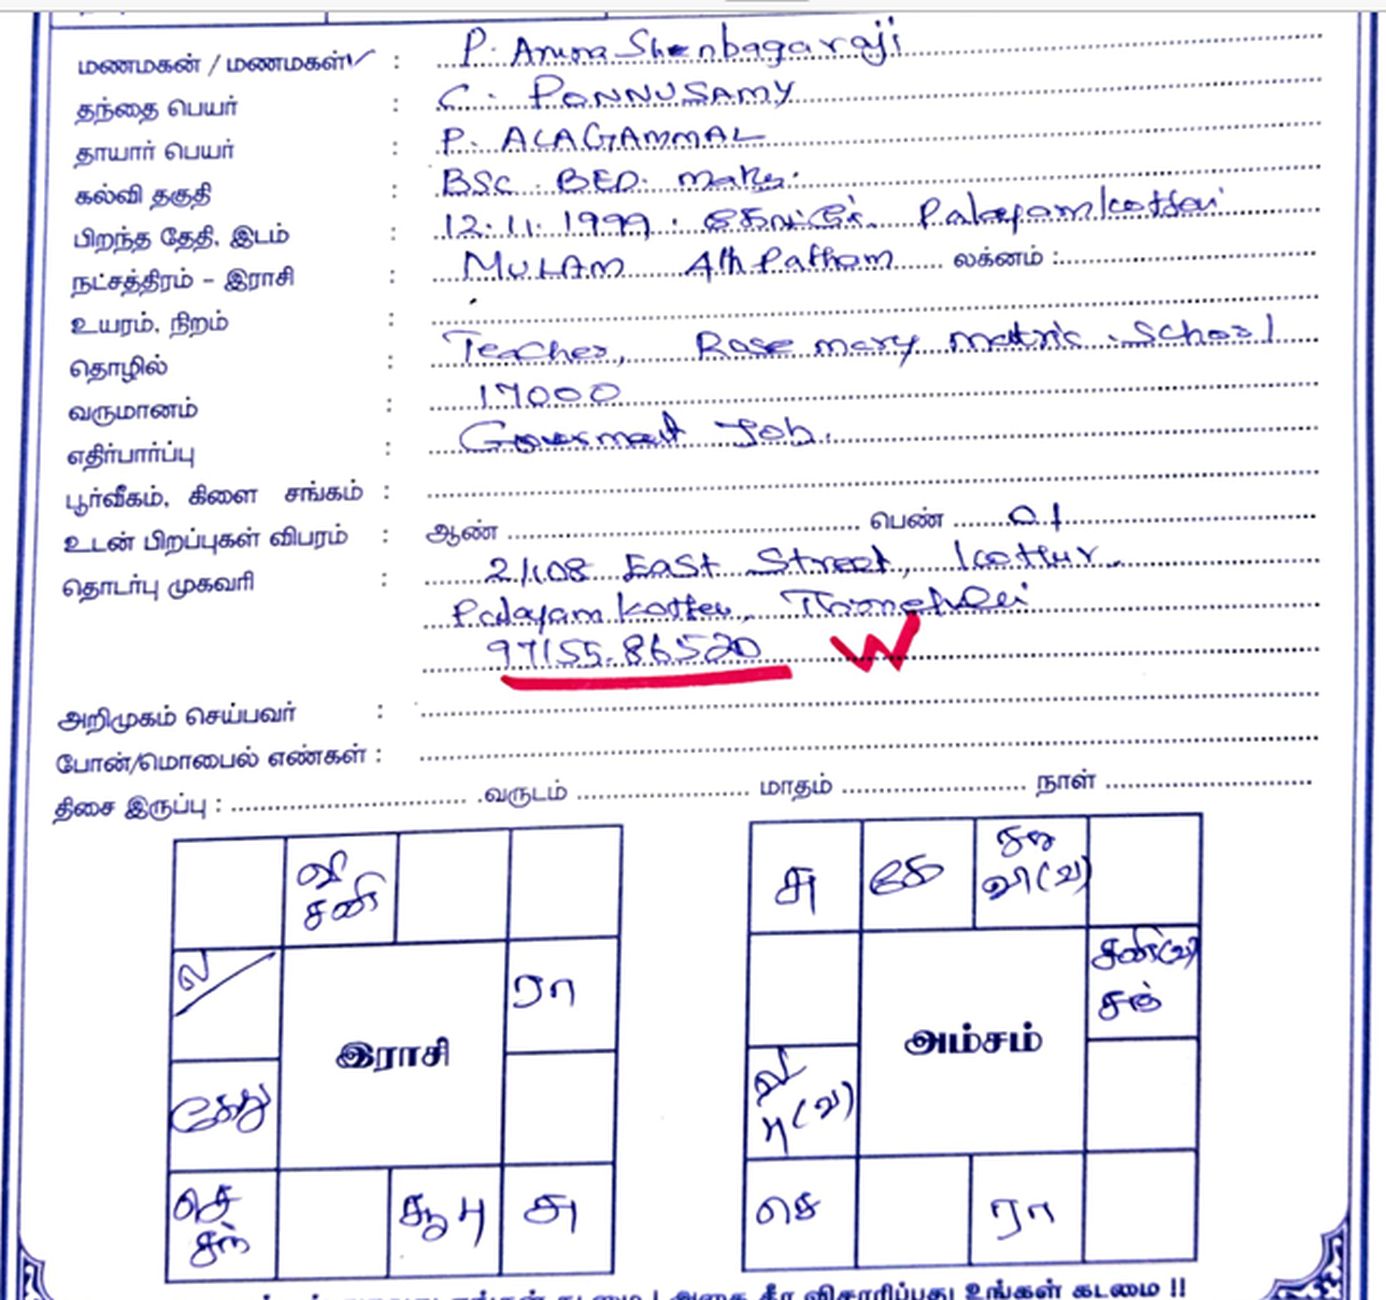 மணமகன் / மணமகள்✓ : P. Aruna Shenbagaraji
தந்தை பெயர் : C. PONNUSAMY
தாயார் பெயர் : P. ALAGAMMAL
கல்வி தகுதி : BSC. BED. maths.
பிறந்த தேதி, இடம் : 12.11.1999. Palayamkottai
நட்சத்திரம் – இராசி : MULAM 4th Patham லக்னம் :
உயரம், நிறம் :
தொழில் : Teacher, Rose mary matric. School
வருமானம் : 17000
எதிர்பார்ப்பு : Goverment Job.
பூர்வீகம், கிளை சங்கம் :
உடன் பிறப்புகள் விபரம் : ஆண் பெண் 01
தொடர்பு முகவரி : 2/108 East Street, Kottur,
Palayamkottai,
97155.86520 W
அறிமுகம் செய்பவர் :
போன்/மொபைல் எண்கள் :
திசை இருப்பு : வருடம் மாதம் நாள்
வி சனி
ல ரா
இராசி
கேது
செ சந் சூ பு சு
சு கே வி(வ)
சனி(வ)
அம்சம்
பு(வ)
செ ரா
உங்கள் கடமை !!